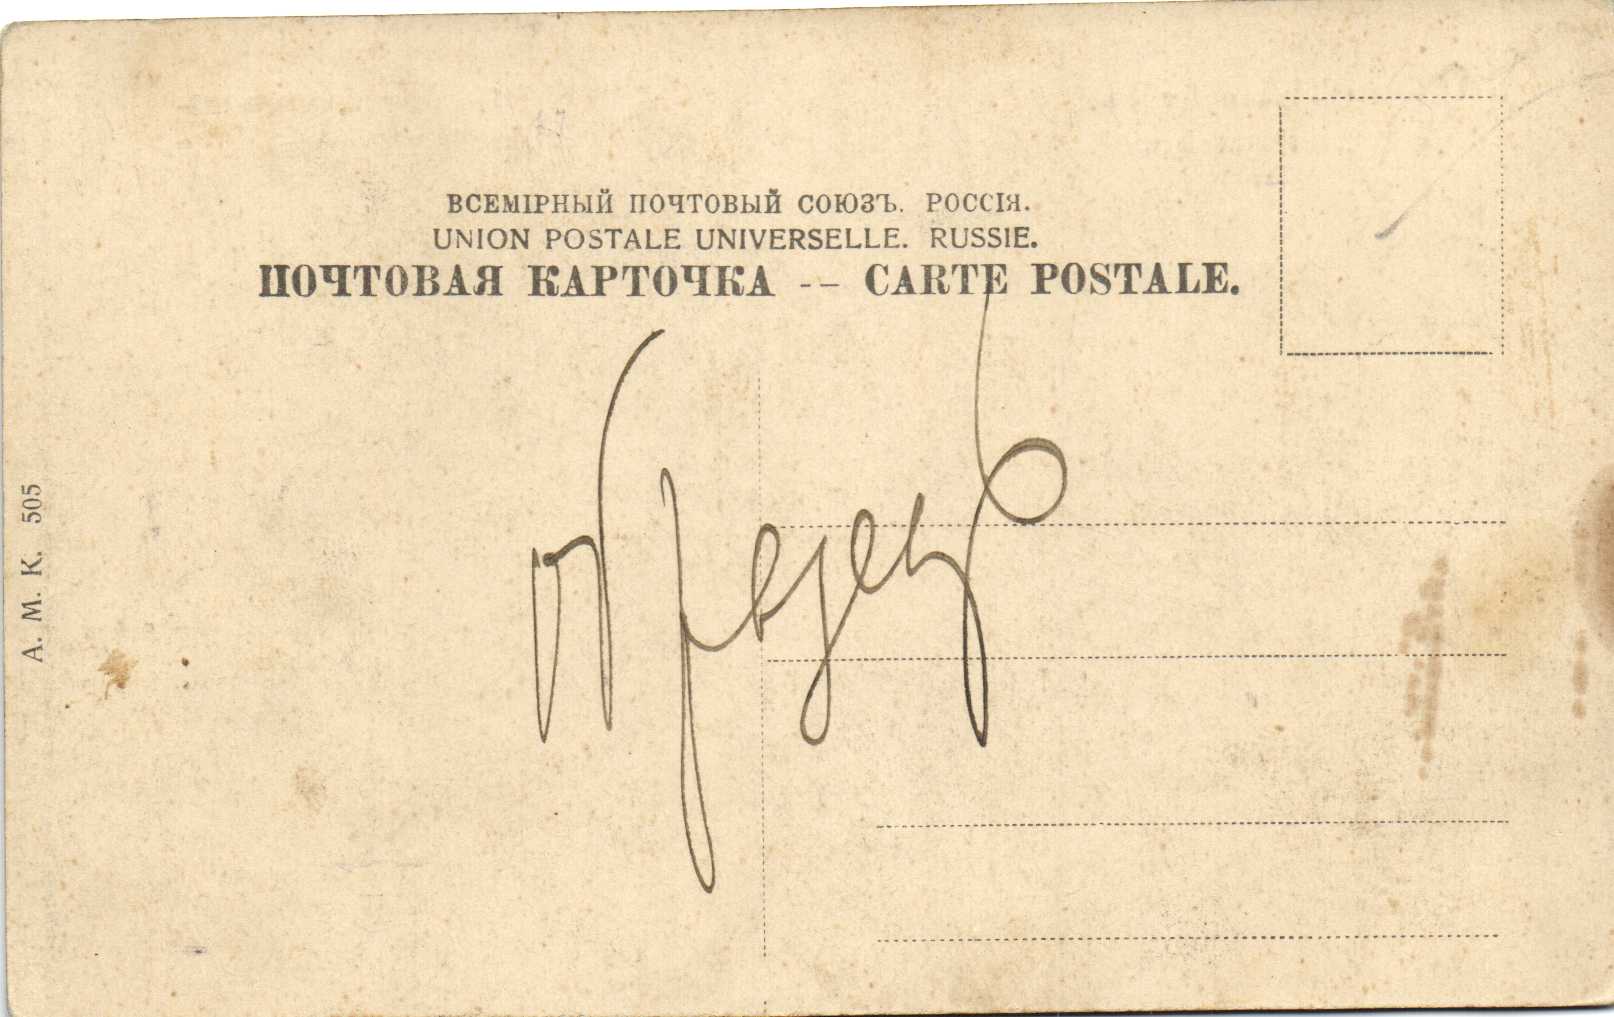 ВСЕМІРНЫЙ ПОЧТОВЫЙ СОЮЗЪ. РОССІЯ.
UNION POSTALE UNIVERSELLE. RUSSIE.
ПОЧТОВАЯ КАРТОЧКА -- CARTE POSTALE.
А. М. К. 505